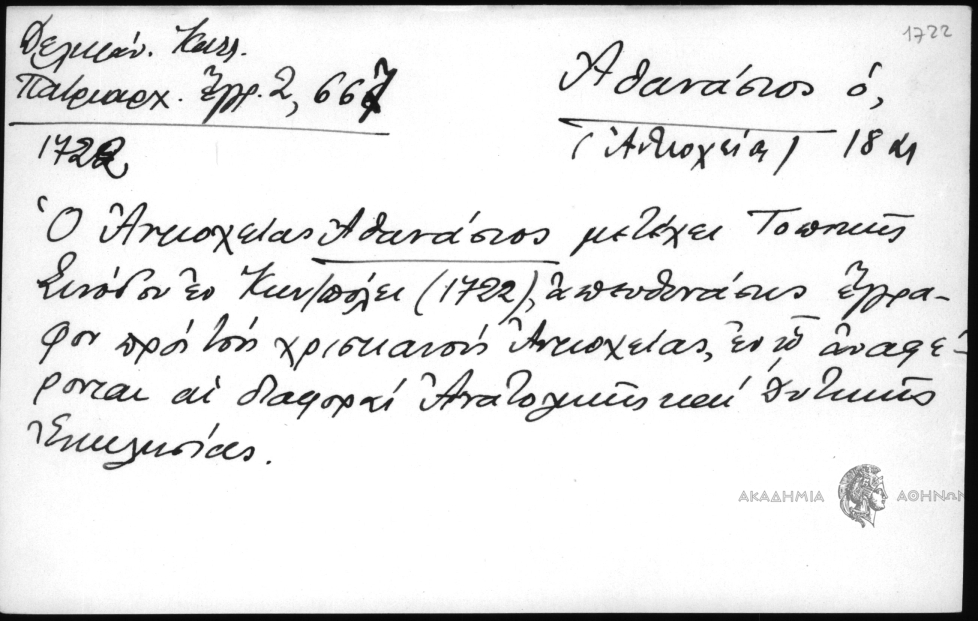 1722
Δελικάν. Κατλ.
Πατριαρχ. Ἐγγρ. 2, 667
1722
Ἀθανάσιος ὁ,
(Ἀντιοχείας) 18 αι
Ὁ Ἀντιοχείας Ἀθανάσιος μετέχει Τοπικῆς
Συνόδου ἐν Κων/πόλει (1722), ἀπευθυνάσης ἔγγρα-
φον πρὸς τοὺς χριστιανοὺς Ἀντιοχείας, ἐν ᾧ ἀναφέ-
ρονται αἱ διαφοραὶ Ἀνατολικῆς καὶ Δυτικῆς
Ἐκκλησίας.
ΑΚΑΔΗΜΙΑ ΑΘΗΝΩΝ